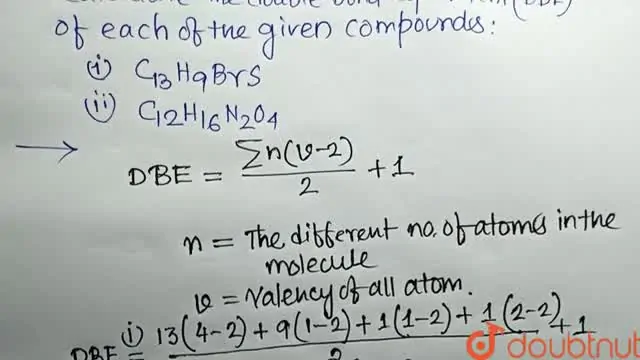 of each of the given compounds:
(i) C13H9BrS
(ii) C12H16N2O4
→ DBE = Σn(v-2)/2 + 1
n = The different no. of atoms in the
molecule
v = Valency of all atom.
DBE = (i) 13(4-2) + 9(1-2) + 1(1-2) + 1(2-2) + 1
2
doubtnut